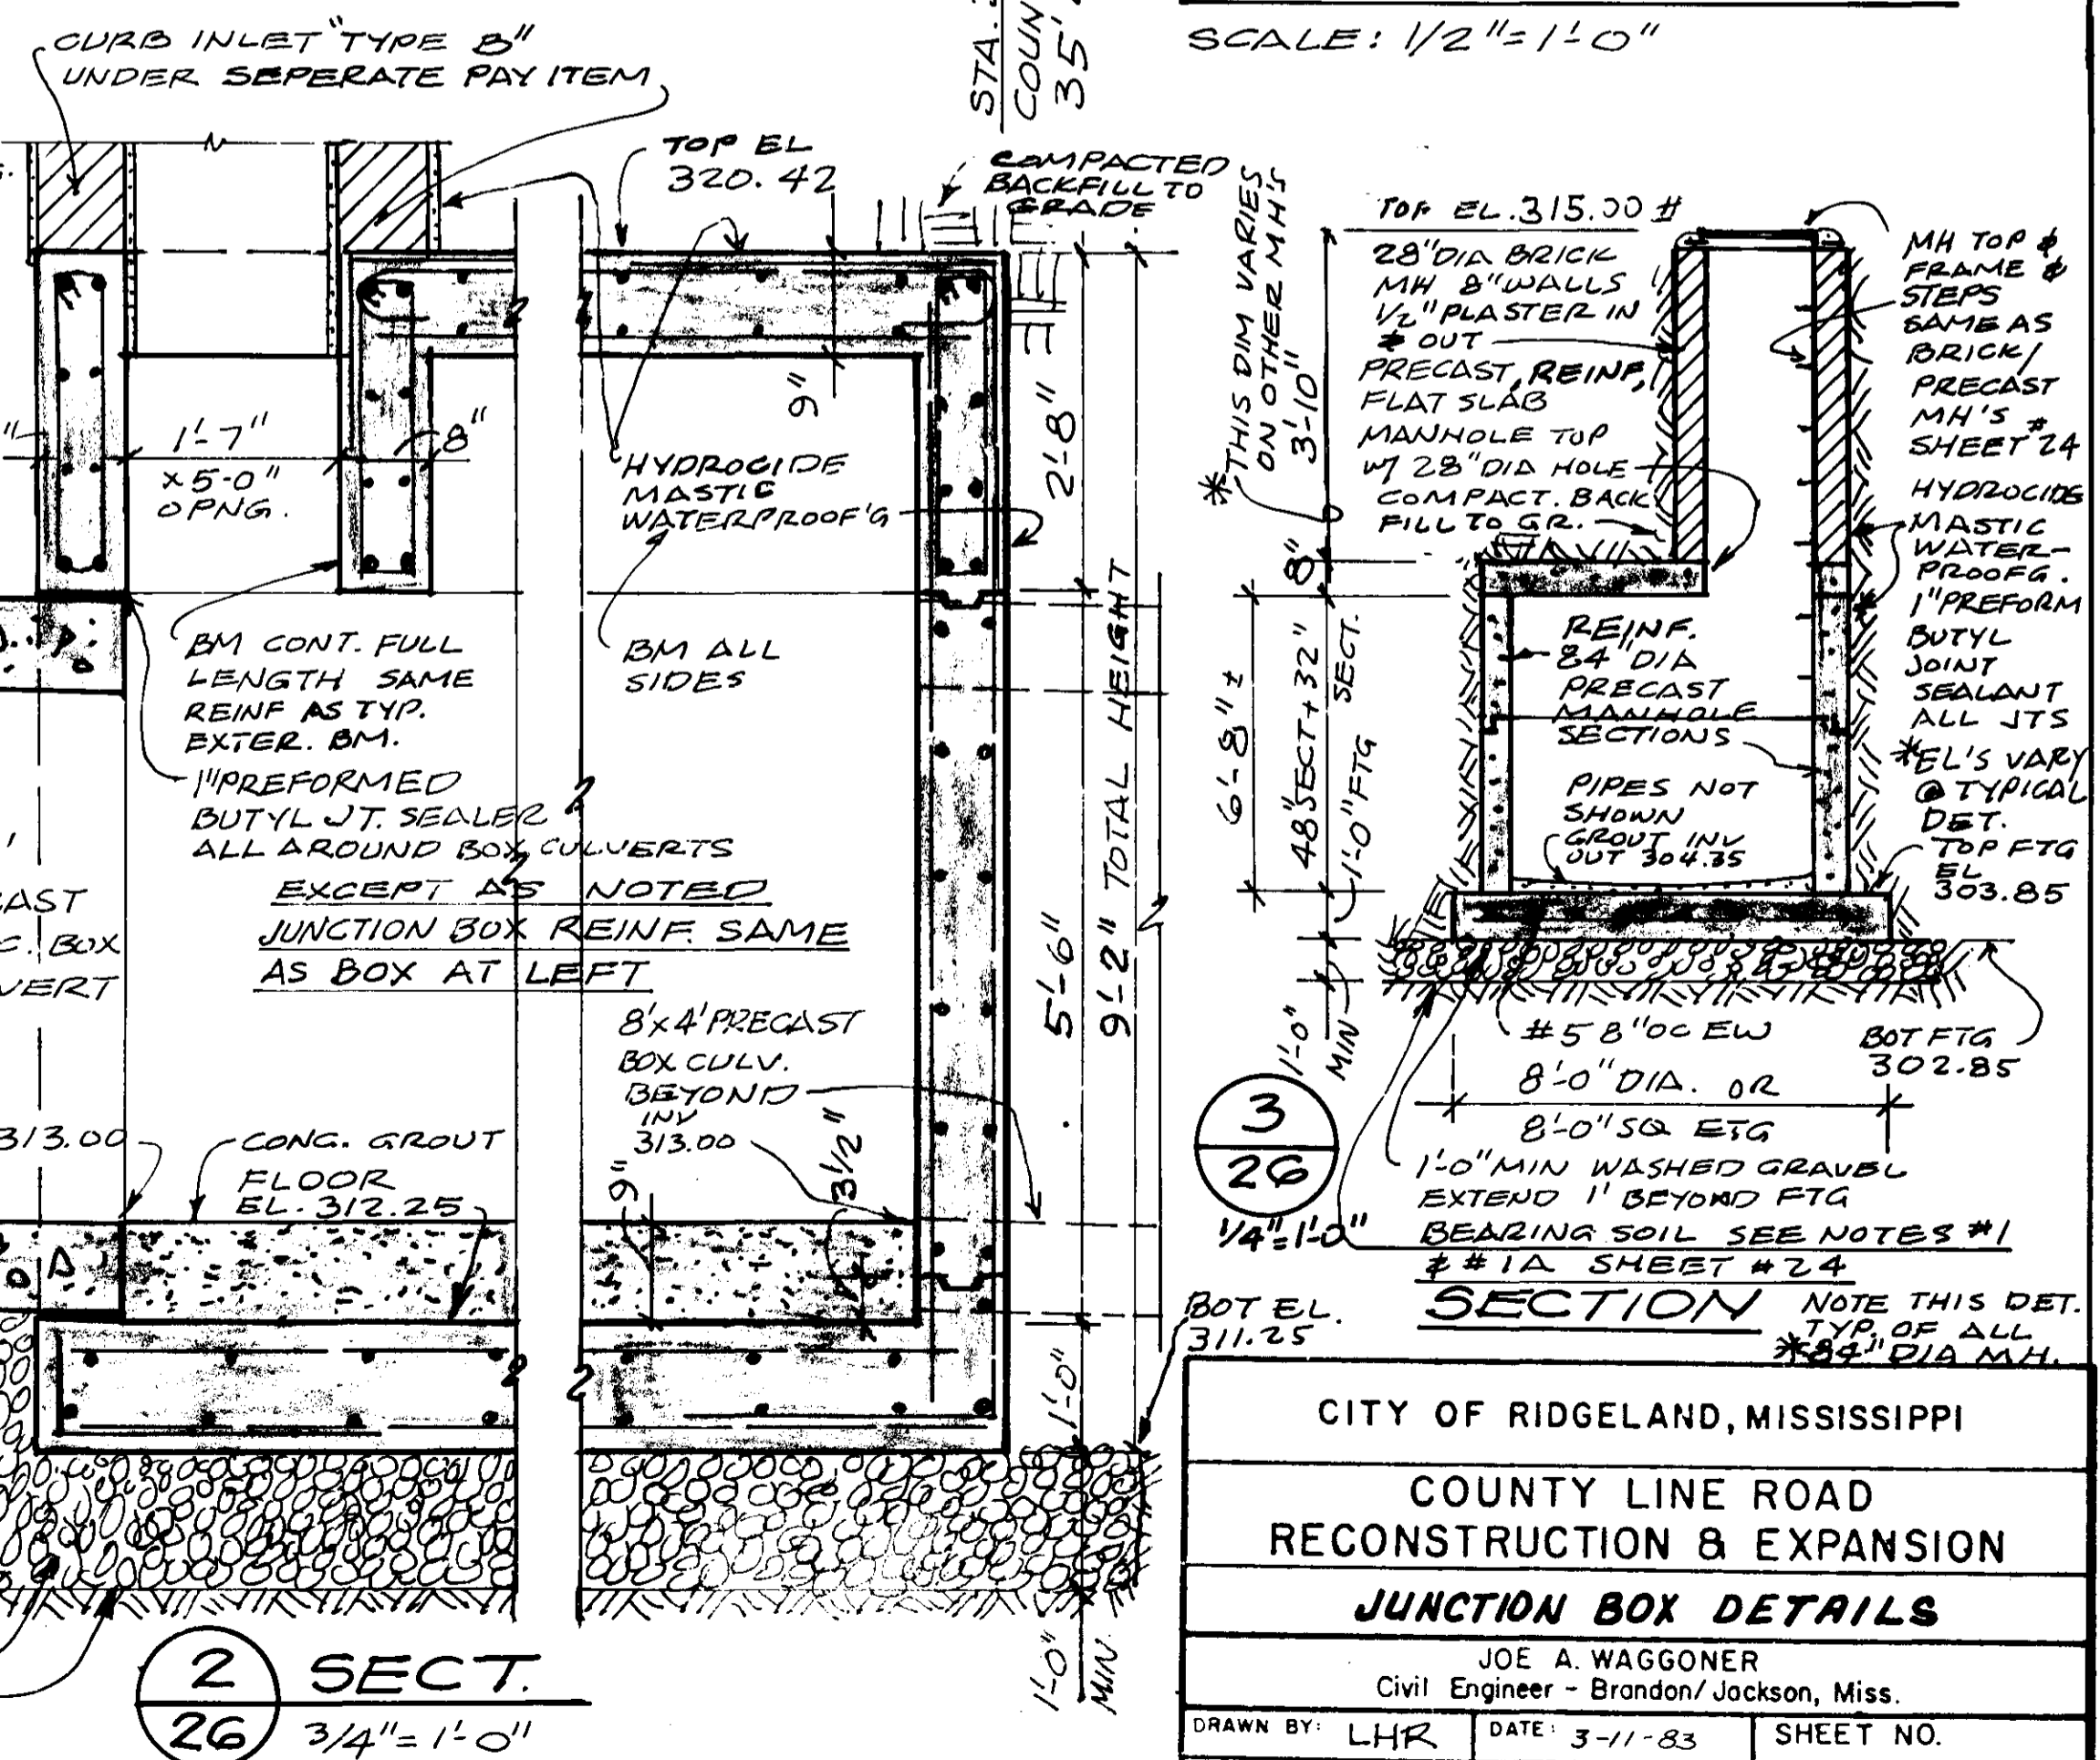 CURB INLET "TYPE B"
UNDER SEPERATE PAY ITEM
STA.
COUN
35'
SCALE: 1/2"=1'-0"
TOP EL
320.42
COMPACTED
BACKFILL TO
GRADE
9"
2'-8"
1'-7"
x 5'-0"
OPNG.
8"
HYDROCIDE
MASTIC
WATERPROOF'G
BM CONT. FULL
LENGTH SAME
REINF AS TYP.
EXTER. BM.
BM ALL
SIDES
1" PREFORMED
BUTYL JT. SEALER
ALL AROUND BOX CULVERTS
EXCEPT AS NOTED
JUNCTION BOX REINF. SAME
AS BOX AT LEFT
AST
C. BOX
VERT
8'x4' PRECAST
BOX CULV.
BEYOND
INV
313.00
313.00
CONC. GROUT
FLOOR
EL. 312.25
9"
3 1/2"
5'-6"
9'-2" TOTAL HEIGHT
1'-0"
BOT EL.
311.25
1'-0"
MIN
2
26
SECT.
3/4"=1'-0"
*THIS DIM VARIES
ON OTHER MH'S
3'-10"
8"
6'-8" ±
48" SECT + 32"
SECT.
1'-0" FTG
1'-0"
MIN
TOP EL. 315.00 #
28" DIA BRICK
MH 8" WALLS
1/2" PLASTER IN
& OUT
PRECAST, REINF,
FLAT SLAB
MANHOLE TOP
W/ 28" DIA HOLE
COMPACT. BACK
FILL TO GR.
MH TOP &
FRAME &
STEPS
SAME AS
BRICK/
PRECAST
MH'S
SHEET #24
HYDROCIDE
MASTIC
WATER-
PROOFG.
1" PREFORM
BUTYL
JOINT
SEALANT
ALL JTS
*EL'S VARY
@ TYPICAL
DET.
TOP FTG
EL
303.85
REINF.
84" DIA
PRECAST
MANHOLE
SECTIONS
PIPES NOT
SHOWN
GROUT INV
OUT 304.35
#5 8"OC EW
BOT FTG
302.85
8'-0" DIA. OR
8'-0" SQ FTG
1'-0" MIN WASHED GRAVEL
EXTEND 1' BEYOND FTG
BEARING SOIL SEE NOTES #1
& #1A SHEET #24
3
26
1/4"=1'-0"
SECTION
NOTE THIS DET.
TYP. OF ALL
*84" DIA MH.
CITY OF RIDGELAND, MISSISSIPPI
COUNTY LINE ROAD
RECONSTRUCTION & EXPANSION
JUNCTION BOX DETAILS
JOE A. WAGGONER
Civil Engineer - Brandon/Jackson, Miss.
DRAWN BY: LHR
DATE: 3-11-83
SHEET NO.